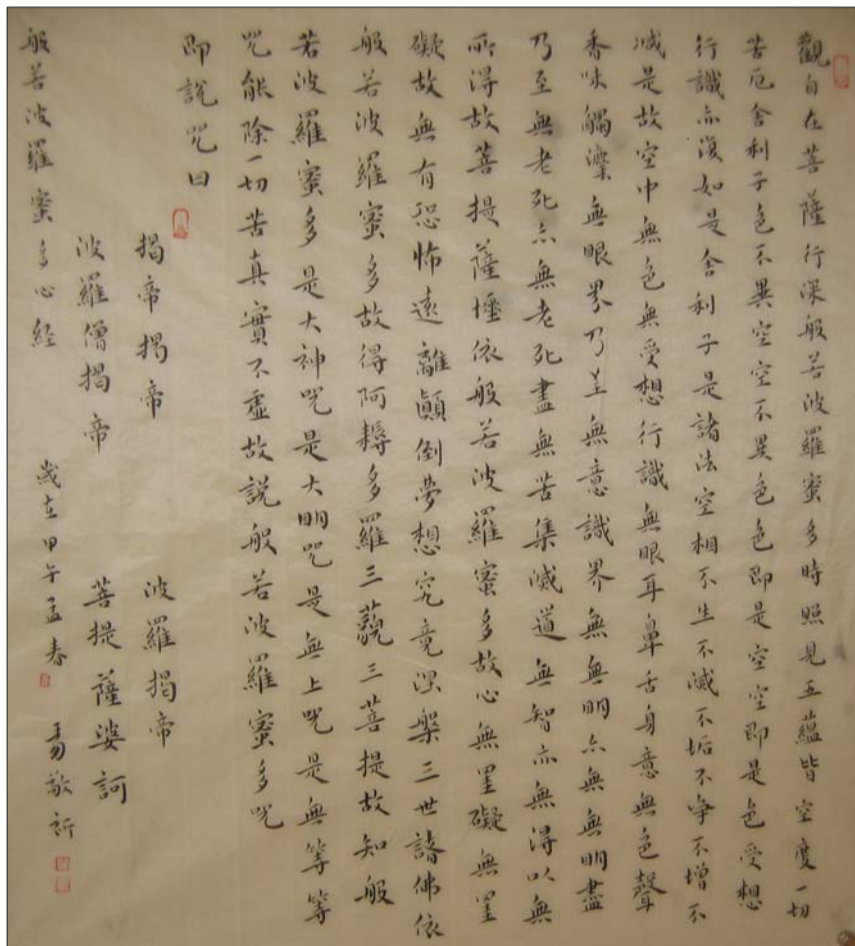 觀自在菩薩行深般若波羅蜜多時照見五蘊皆空度一切
苦厄舍利子色不異空空不異色色即是空空即是色受想
行識亦復如是舍利子是諸法空相不生不滅不垢不净不增不
減是故空中無色無受想行識無眼耳鼻舌身意無色聲
香味觸灋無眼界乃至無意識界無無明亦無無明盡
乃至無老死亦無老死盡無苦集滅道無智亦無得以無
所得故菩提薩埵依般若波羅蜜多故心無罣礙無罣
礙故無有恐怖遠離顛倒夢想究竟涅槃三世諸佛依
般若波羅蜜多故得阿耨多羅三藐三菩提故知般
若波羅蜜多是大神咒是大明咒是無上咒是無等等
咒能除一切苦真實不虛故說般若波羅蜜多咒
即說咒曰
揭帝揭帝 波羅揭帝
波羅僧揭帝 菩提薩婆訶
般若波羅蜜多心経 歲在甲午孟春 敬祈